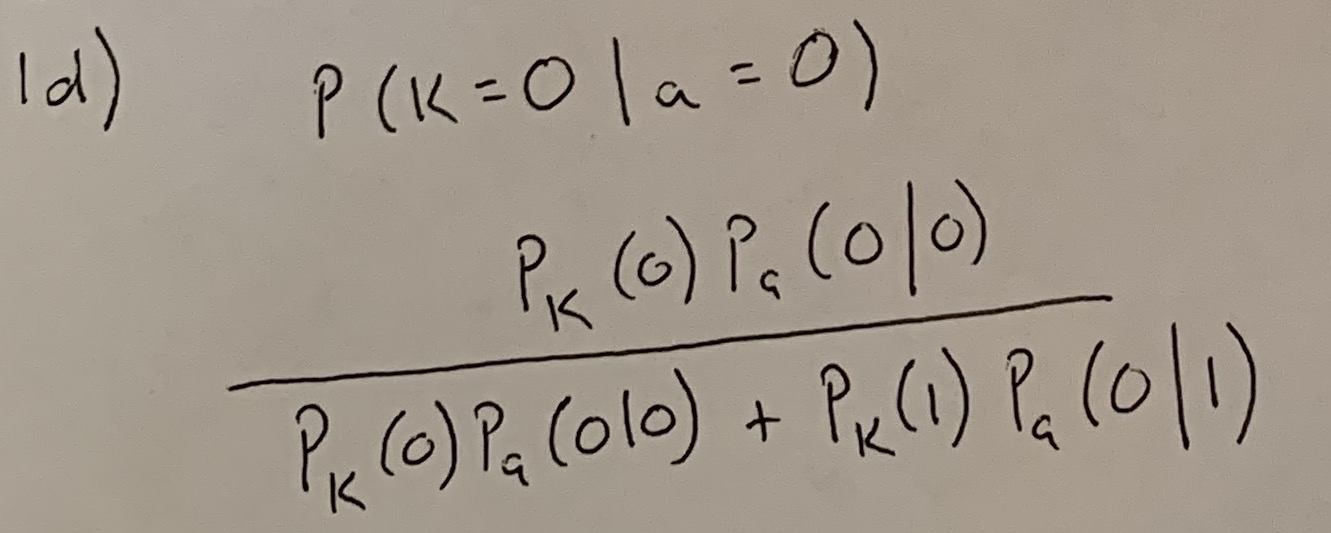 1d) P(K=0|a=0)
P_K(0)P_a(0|0)
P_K(0)P_a(0|0) + P_K(1)P_a(0|1)